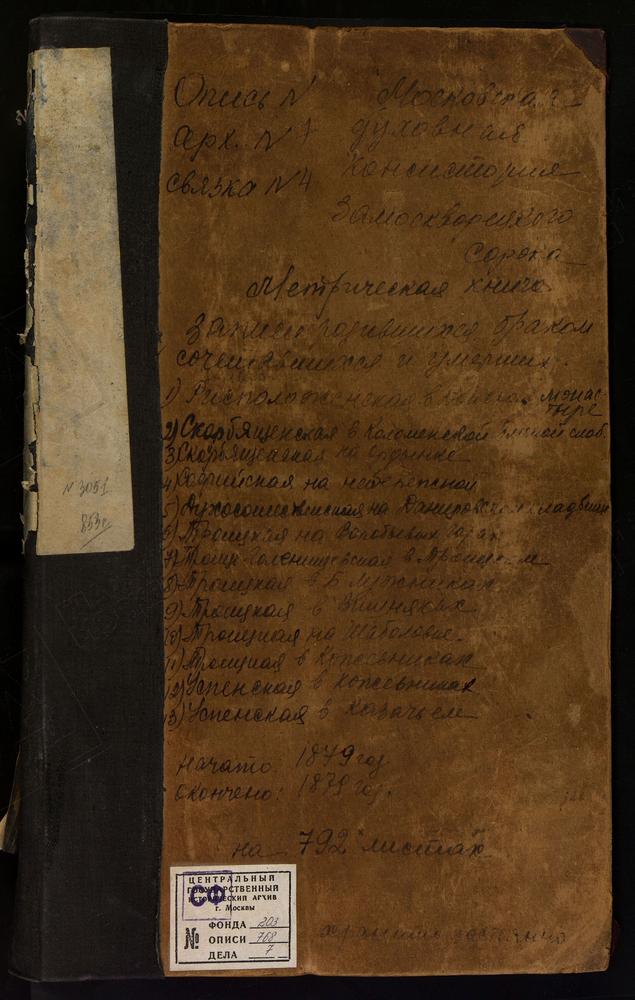 Опись №
Московская
арх. № 7
духовная
связка № 4
консистория
Замоскворецкого
Сорока
Метрическая книга
Записи родившихся браком
сочетавшихся и умерших.
1) Ризположенская в Донском монас-
тыре
2) Скорбященская в Коломенской Ямской слоб.
3) Скорбященская на Ордынке
4) Софийская на набережной
5) Духосошественская на Даниловском кладбищ
6) Троицкая на Воробьевых Горах
7) Троиц-Голенищевская в Троицком
8) Троицкая в Б Лужниках
9) Троицкая в Вишняках
10) Троицкая на Шаболовке
11) Троицкая в Кожевниках
12) Успенская в Кожевниках
13) Успенская в Казачьем
начато: 1879 год
окончено: 1879 год.
на 792 листах
хранить постоянно
№ 3051
853с
СФ
ЦЕНТРАЛЬНЫЙ
ГОСУДАРСТВЕННЫЙ
ИСТОРИЧЕСКИЙ АРХИВ
г. Москвы
ФОНДА 203
№ ОПИСИ 768
ДЕЛА 7